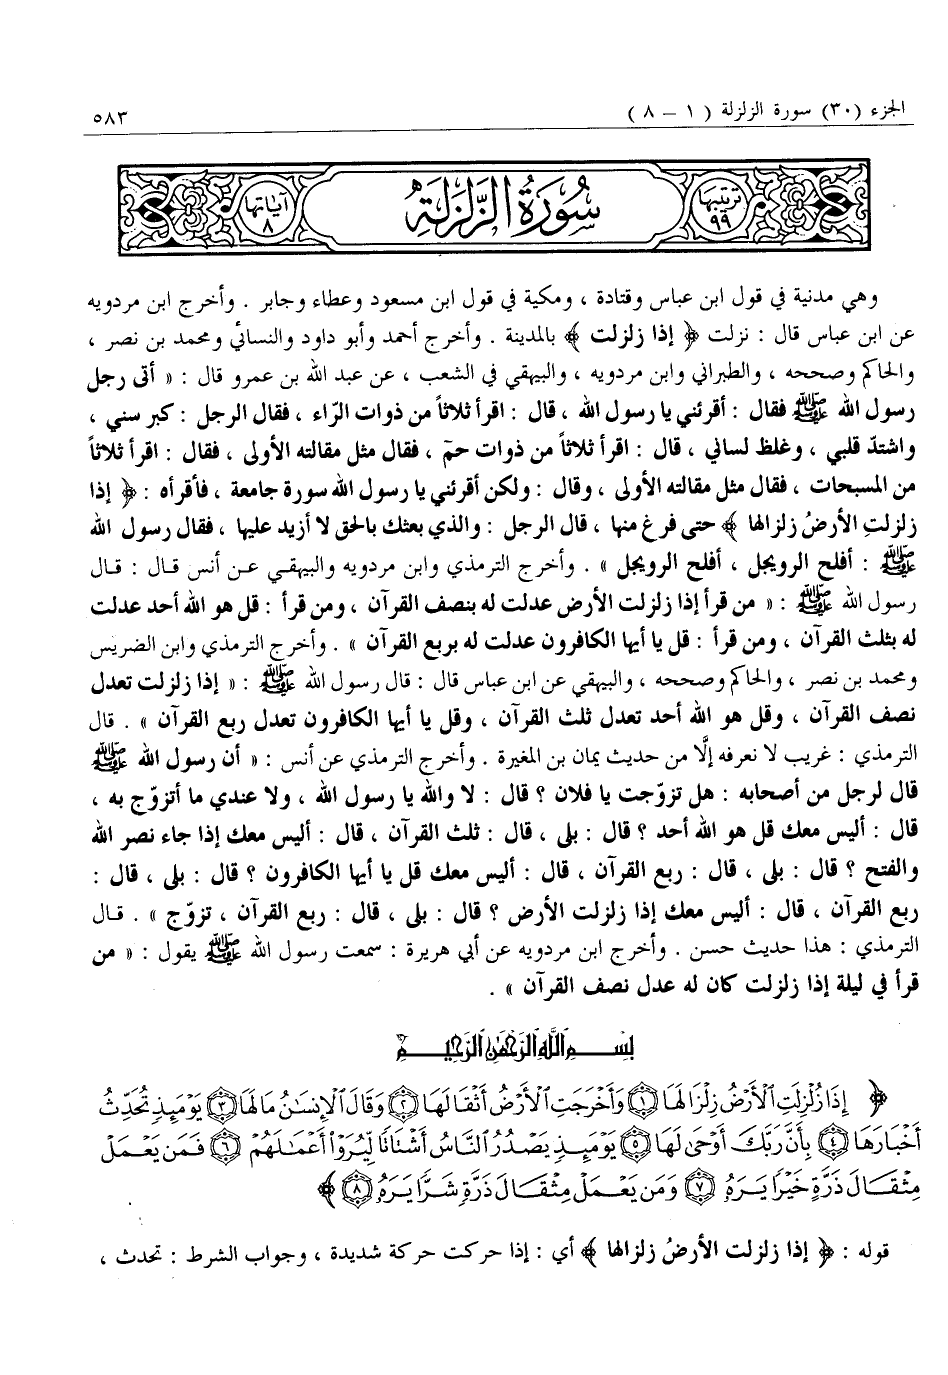 الجزء (٣٠) سورة الزلزلة ( ١ – ٨ ) ٥٨٣
ترتيبها ٩٩ سُورَةُ الزَّلْزَلَة آياتها ٨
وهي مدنية في قول ابن عباس وقتادة ، ومكية في قول ابن مسعود وعطاء وجابر . وأخرج ابن مردويه
عن ابن عباس قال : نزلت ﴿ إذا زلزلت ﴾ بالمدينة . وأخرج أحمد وأبو داود والنسائي ومحمد بن نصر ،
والحاكم وصححه ، والطبراني وابن مردويه ، والبيهقي في الشعب ، عن عبد الله بن عمرو قال : « أتى رجل
رسول الله ﷺ فقال : أقرئني يا رسول الله ، قال : اقرأ ثلاثاً من ذوات الرّاء ، فقال الرجل : كبر سني ،
واشتدّ قلبي ، وغلظ لساني ، قال : اقرأ ثلاثاً من ذوات حمّ ، فقال مثل مقالته الأولى ، فقال : اقرأ ثلاثاً
من المسبحات ، فقال مثل مقالته الأولى ، وقال : ولكن أقرئني يا رسول الله سورة جامعة ، فأقرأه : ﴿ إذا
زلزلتِ الأرضُ زلزالها ﴾ حتى فرغ منها ، قال الرجل : والذي بعثك بالحق لا أزيد عليها ، فقال رسول الله
ﷺ : أفلح الرويجل ، أفلح الرويجل » . وأخرج الترمذي وابن مردويه والبيهقي عن أنس قال : قال
رسول الله ﷺ : « من قرأ إذا زلزلت الأرض عدلت له بنصف القرآن ، ومن قرأ : قل هو الله أحد عدلت
له بثلث القرآن ، ومن قرأ : قل يا أيها الكافرون عدلت له بربع القرآن » . وأخرج الترمذي وابن الضريس
ومحمد بن نصر ، والحاكم وصححه ، والبيهقي عن ابن عباس قال : قال رسول الله ﷺ : « إذا زلزلت تعدل
نصف القرآن ، وقل هو الله أحد تعدل ثلث القرآن ، وقل يا أيها الكافرون تعدل ربع القرآن » . قال
الترمذي : غريب لا نعرفه إلَّا من حديث يمان بن المغيرة . وأخرج الترمذي عن أنس : « أن رسول الله ﷺ
قال لرجل من أصحابه : هل تزوّجت يا فلان ؟ قال : لا والله يا رسول الله ، ولا عندي ما أتزوّج به ،
قال : أليس معك قل هو الله أحد ؟ قال : بلى ، قال : ثلث القرآن ، قال : أليس معك إذا جاء نصر الله
والفتح ؟ قال : بلى ، قال : ربع القرآن ، قال : أليس معك قل يا أيها الكافرون ؟ قال : بلى ، قال :
ربع القرآن ، قال : أليس معك إذا زلزلت الأرض ؟ قال : بلى ، قال : ربع القرآن ، تزوّج » . قال
الترمذي : هذا حديث حسن . وأخرج ابن مردويه عن أبي هريرة : سمعت رسول الله ﷺ يقول : « من
قرأ في ليلة إذا زلزلت كان له عدل نصف القرآن » .
بِسْمِ اللَّهِ الرَّحْمَٰنِ الرَّحِيمِ
﴿ إِذَا زُلْزِلَتِ ٱلْأَرْضُ زِلْزَالَهَا ١ وَأَخْرَجَتِ ٱلْأَرْضُ أَثْقَالَهَا ٢ وَقَالَ ٱلْإِنسَٰنُ مَا لَهَا ٣ يَوْمَئِذٍ تُحَدِّثُ
أَخْبَارَهَا ٤ بِأَنَّ رَبَّكَ أَوْحَىٰ لَهَا ٥ يَوْمَئِذٍ يَصْدُرُ ٱلنَّاسُ أَشْتَاتًا لِّيُرَوْا۟ أَعْمَٰلَهُمْ ٦ فَمَن يَعْمَلْ
مِثْقَالَ ذَرَّةٍ خَيْرًا يَرَهُۥ ٧ وَمَن يَعْمَلْ مِثْقَالَ ذَرَّةٍ شَرًّا يَرَهُۥ ٨ ﴾
قوله : ﴿ إذا زلزلت الأرضُ زلزالها ﴾ أي : إذا حركت حركة شديدة ، وجواب الشرط : تحدث ،